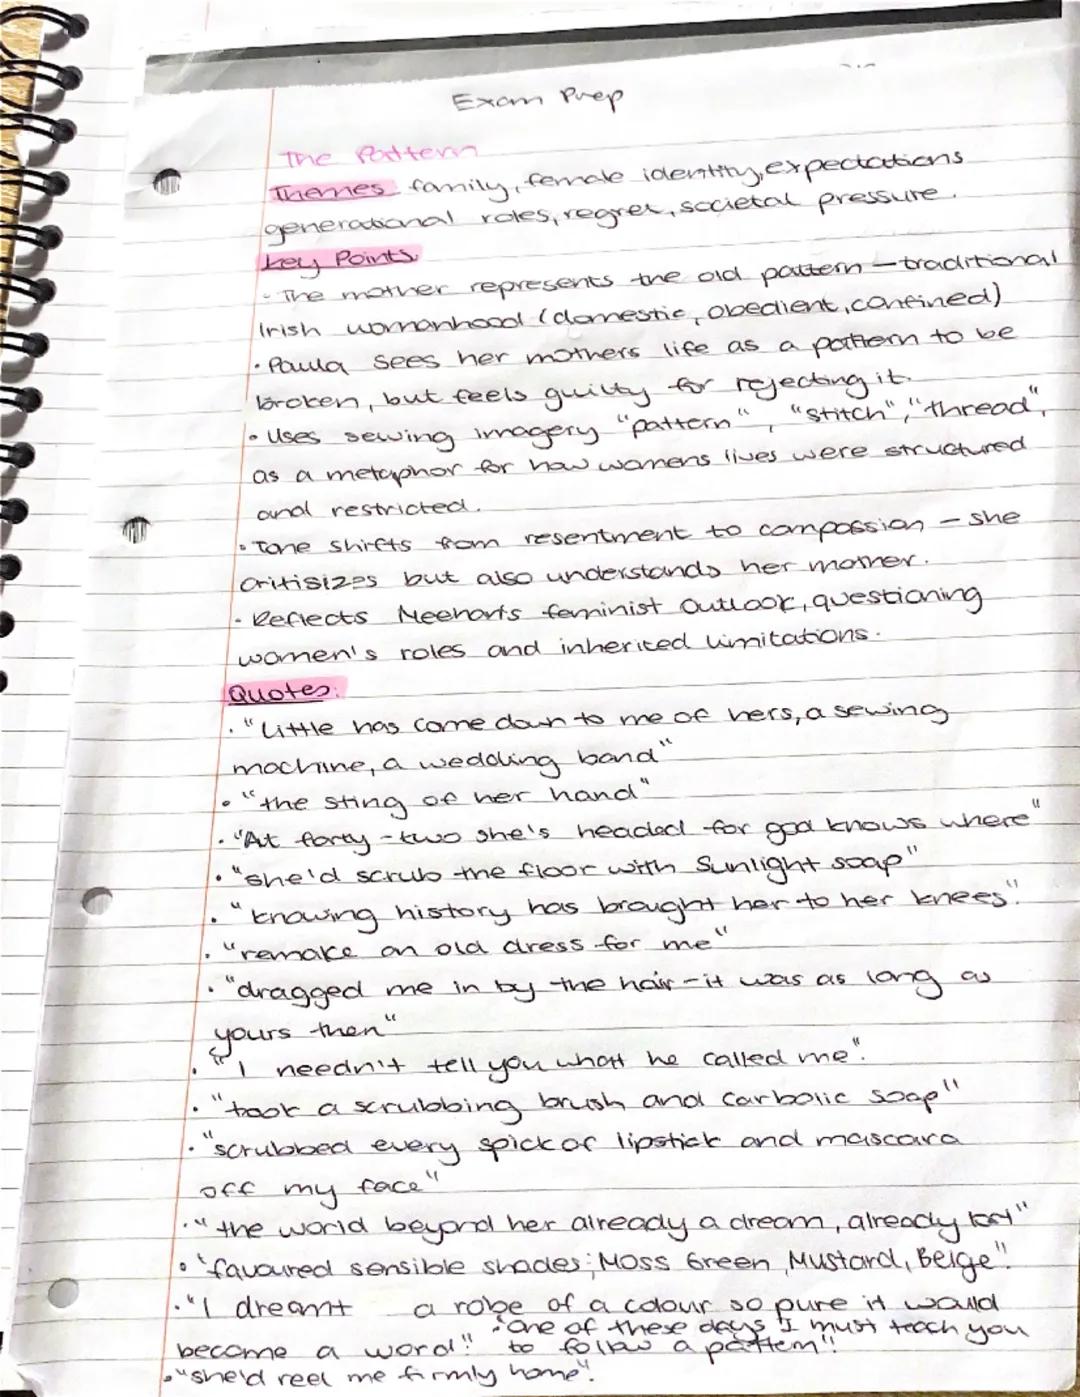 Exam Prep
The Pattern
Themes family, female identity, expectations
generational roles, regret, societal pressure.
Key Points.
- The mother represents the old pattern — traditional
Irish womanhood (domestic, obedient, confined)
• Paula sees her mothers life as a pattern to be
broken, but feels guilty for rejecting it.
• Uses sewing imagery "pattern", "stitch", "thread",
as a metaphor for how womens lives were structured
and restricted.
• Tone shifts from resentment to compassion – she
critisizes but also understands her mother.
- Reflects Meehan's feminist outlook, questioning
women's roles and inherited limitations.
Quotes:
• "Little has come down to me of hers, a sewing
machine, a wedding band"
• "the sting of her hand"
• "At forty-two she's headed for god knows where"
• "she'd scrub the floor with Sunlight soap"
• "knowing history has brought her to her knees".
• "remake an old dress for me"
• "dragged me in by the hair – it was as long as
yours then"
• "I needn't tell you what he called me".
• "took a scrubbing brush and carbolic soap"
• "scrubbed every spick of lipstick and mascara
off my face"
• "the world beyond her already a dream, already lost"
• "favoured sensible shades; Moss Green, Mustard, Beige".
• "I dreamt a robe of a colour so pure it would
become a word".
• "One of these days I must teach you
to follow a pattern".
• "she'd reel me firmly home".